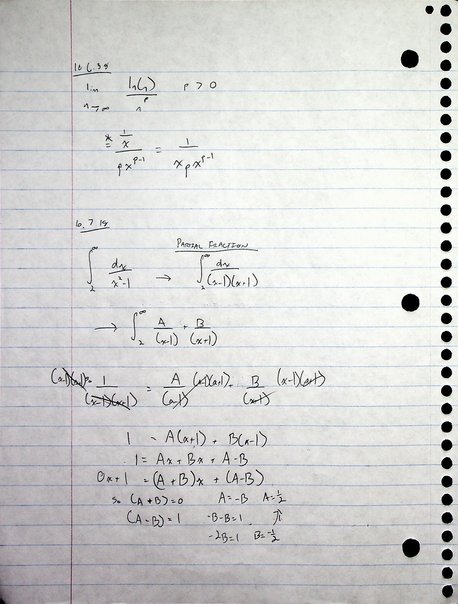 lim ln(n) / n^p p > 0
n→∞
* = (1/x) / (p x^(p-1)) = 1 / (x p x^(p-1))
6.7 18
PARTIAL FRACTION
∫_2^∞ dx / (x²-1) → ∫_2^∞ dx / ((x-1)(x+1))
→ ∫_2^∞ A/(x-1) + B/(x+1)
1 / ((x-1)(x+1)) = A/(x-1) (x-1)(x+1) + B/(x+1) (x-1)(x+1)
1 = A(x+1) + B(x-1)
1 = Ax + Bx + A-B
0x+1 = (A+B)x + (A-B)
so (A+B)=0 A=-B A=1/2
(A-B)=1 -B-B=1 ↑
-2B=1 B=-1/2